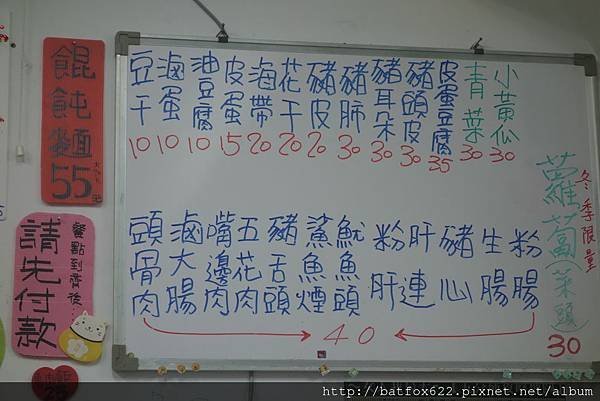 餛飩麵
55
請先付款
餐點到齊後
豆干 10
滷蛋 10
油豆腐 10
皮蛋 15
海帶 20
花干 20
豬皮 20
豬肺 30
豬耳朵 30
豬頭皮 30
皮蛋豆腐 35
青菜 30
小黃瓜 30
頭骨肉
滷大腸
嘴邊肉
五花肉
豬舌頭
鯊魚煙
魷魚頭
粉肝
肝連
豬心
生腸
粉腸
40
冬季限量
蘿蔔菜頭
30
25
http://batfox622.pixnet.net/album